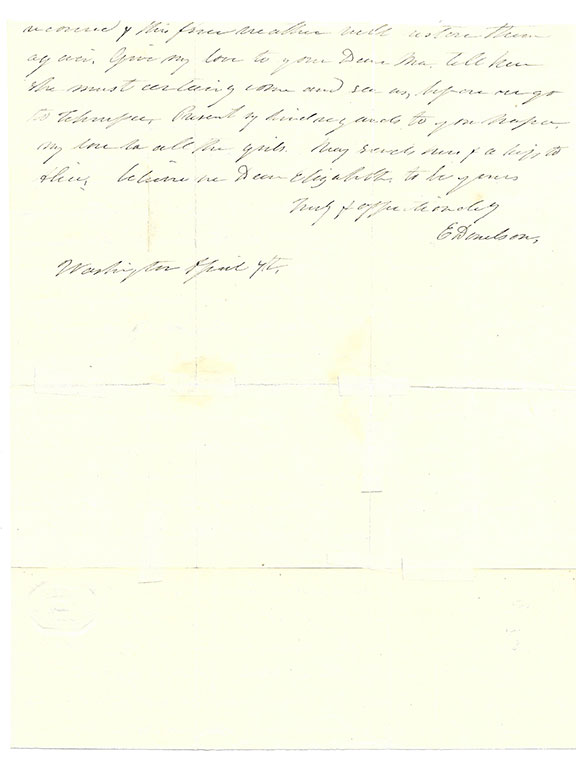 recovered & this fine weather will restore them
again. Give my love to your Dear Ma, tell her
she must certainly come and see us, before we go
to Tennessee, Present my kind regards to your Papa,
my love to all the girls. May sends love & a kiss to
believe me Dear Elizabeth to be yours
truly & affectionately
E Donelson,
Washington April 7th.